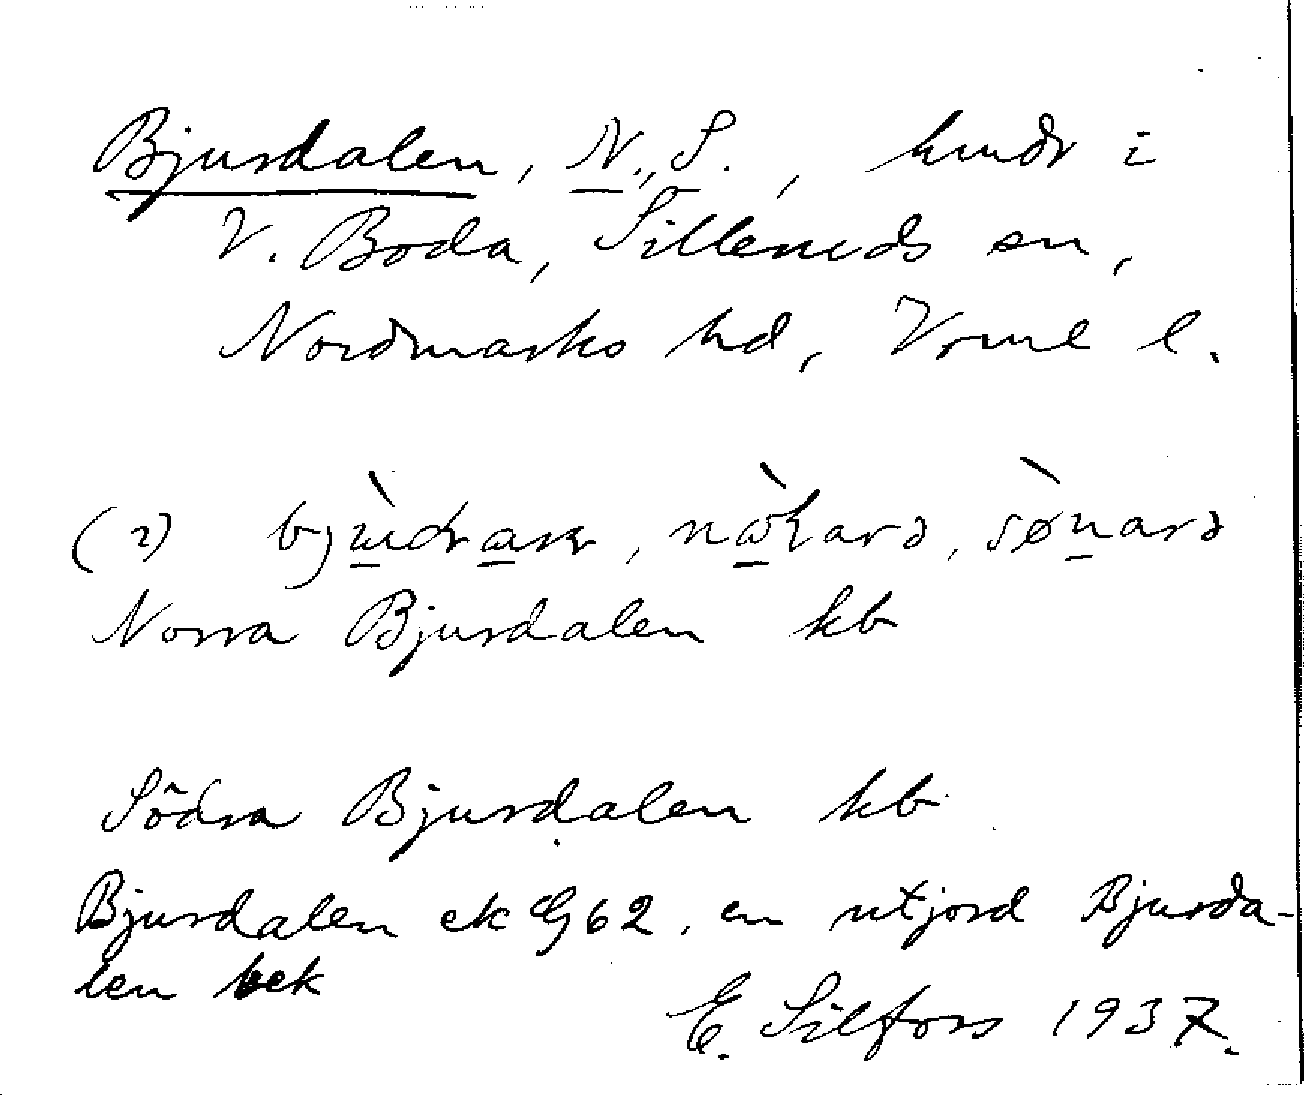 Bjurdalen, N., S., hmdr i
V. Boda, Silleruds sn,
Nordmarks hd, Vrml l.
(2)
Norra Bjurdalen kb
Södra Bjurdalen kb
Bjurdalen ek G62, en utjord Bjurda-
len bek
E. Silfors 1937.